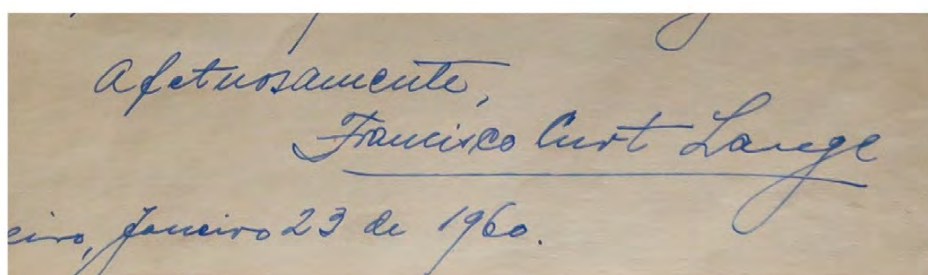 Afetuosamente,
Francisco Curt Lange
eiro, Janeiro 23 de 1960.